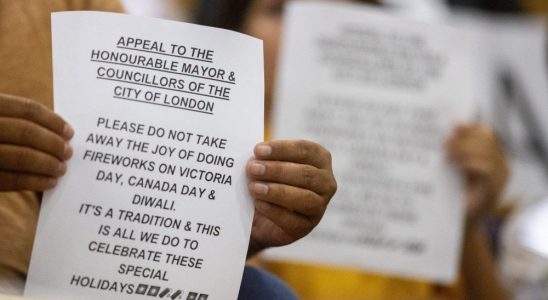 APPEAL TO THE
HONOURABLE MAYOR &
COUNCILLORS OF THE
CITY OF LONDON
PLEASE DO NOT TAKE
AWAY THE JOY OF DOING
FIREWORKS ON VICTORIA
DAY, CANADA DAY &
DIWALI.
IT'S A TRADITION & THIS
IS ALL WE DO TO
CELEBRATE THESE
SPECIAL
HOLIDAYS